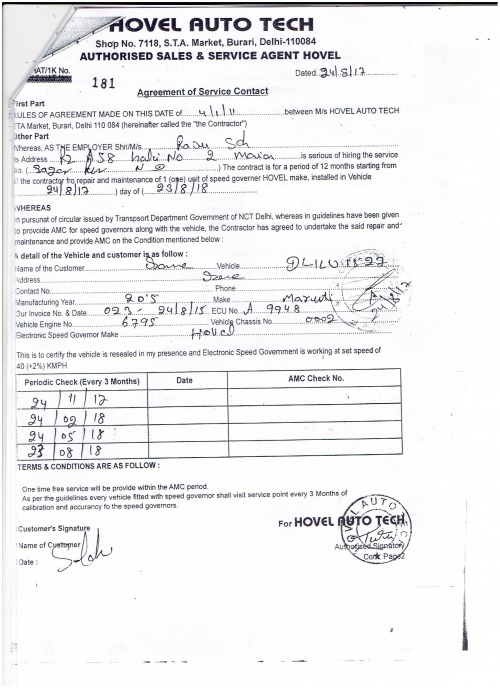 HOVEL AUTO TECH
Shop No. 7118, S.T.A. Market, Burari, Delhi-110084
AUTHORISED SALES & SERVICE AGENT HOVEL
HAT/1K No. 181
Dated. 24/8/17
Agreement of Service Contact
First Part
RULES OF AGREEMENT MADE ON THIS DATE of 4/1/11 between M/s HOVEL AUTO TECH
STA Market, Burari, Delhi 110 084 (hereinafter called the "the Contractor")
Other Part
Whereas, AS THE EMPLOYER Shri/M/s. Raju
is Address No 2 is serious of hiring the service
No. ( ) The contract is for a period of 12 months starting from
the contractor fro repair and maintenance of 1 (one) unit of speed governor HOVEL make, installed in Vehicle
24/8/17 ) day of ( 23/8/18
WHEREAS
In pursunat of circular issued by Transpsort Department Government of NCT Delhi, whereas in guidelines have been given
to provoide AMC for speed governors along with the vehicle, the Contractor has agreed to undertake the said repair and
maintenance and provide AMC on the Condition mentioned below :
A detail of the Vehicle and customer is as follow :
Name of the Customer Same Vehicle
Address Same
Contact No. Phone
Manufacturing Year 2015 Make Maruti
Our Invoice No. & Date 023 - 24/8/15 ECU No. A 9948
Vehicle Engine No 6795 Vehicle Chassis No 0002
Electronic Speed Governor Make Hovel
24/8/17
This is to certify the vehicle is resealed in my presence and Electronic Speed Government is working at set speed of
40 (+2%) KMPH
Periodic Check (Every 3 Months) Date AMC Check No.
24 / 11 / 17
24 / 02 / 18
24 / 05 / 18
23 / 08 / 18
TERMS & CONDITIONS ARE AS FOLLOW :
One time free service will be provided within the AMC period.
As per the guidelines every vehicle fitted with speed governor shall visit service point every 3 Months of
calibration and accurancy fo the speed governors.
Customer's Signature
For HOVEL AUTO TECH
Name of Customer
Authorised Signatory
Cont. Page2
Date :
HOVEL AUTO TECH